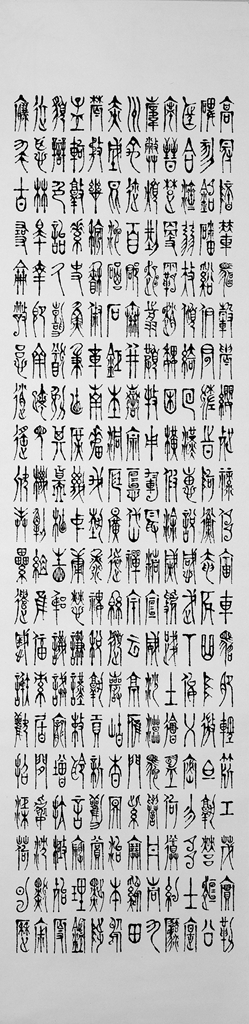 高冠陪輦驅轂振纓世祿侈富車駕肥輕策功茂實勒
碑刻銘磻溪伊尹佐時阿衡奄宅曲阜微旦孰營桓公
匡合濟弱扶傾綺回漢惠說感武丁俊乂密勿多士寔
寧晉楚更霸趙魏困橫假途滅虢踐土會盟何遵約法
韓弊煩刑起翦頗牧用軍最精宣威沙漠馳譽丹青九
州禹跡百郡秦并嶽宗泰岱禪主云亭雁門紫塞雞田
赤城昆池碣石鉅野洞庭曠遠綿邈巖岫杳冥治本於
農務茲稼穡俶載南畝我藝黍稷稅熟貢新勸賞黜陟
孟軻敦素史魚秉直庶幾中庸勞謙謹敕聆音察理鑑
貌辨色貽厥嘉猷勉其祗植省躬譏誡寵增抗極殆辱
近恥林皋幸即兩疏見機解組誰逼索居閒處沉默寂
寥求古尋論散慮逍遙欣奏累遣慼謝歡招渠荷的歷